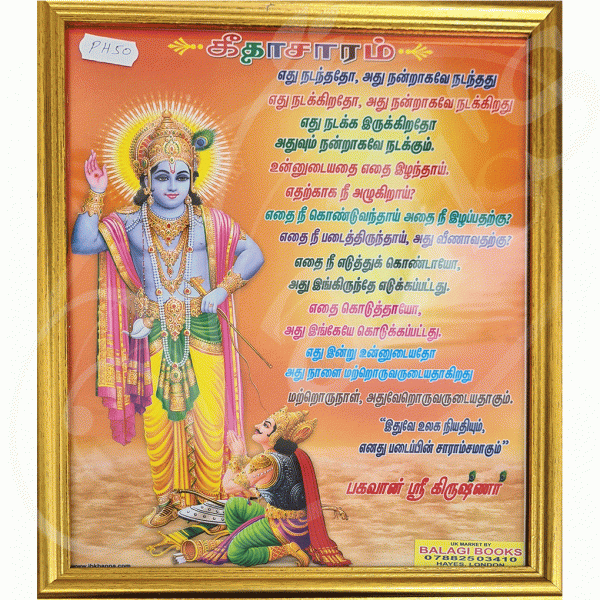 PH50
கீதாசாரம்
எது நடந்ததோ, அது நன்றாகவே நடந்தது
எது நடக்கிறதோ, அது நன்றாகவே நடக்கிறது
எது நடக்க இருக்கிறதோ
அதுவும் நன்றாகவே நடக்கும்.
உன்னுடையதை எதை இழந்தாய்.
எதற்காக நீ அழுகிறாய்?
எதை நீ கொண்டுவந்தாய் அதை நீ இழப்பதற்கு?
எதை நீ படைத்திருந்தாய், அது வீணாவதற்கு?
எதை நீ எடுத்துக் கொண்டாயோ,
அது இங்கிருந்தே எடுக்கப்பட்டது.
எதை கொடுத்தாயோ,
அது இங்கேயே கொடுக்கப்பட்டது.
எது இன்று உன்னுடையதோ
அது நாளை மற்றொருவருடையதாகிறது
மற்றொருநாள், அதுவேறொருவருடையதாகும்.
“இதுவே உலக நியதியும்,
எனது படைப்பின் சாராம்சமாகும்”
பகவான் ஸ்ரீ கிருஷ்ணா
www.jbkhanna.com
UK MARKET BY
BALAGI BOOKS
07882503410
HAYES, LONDON